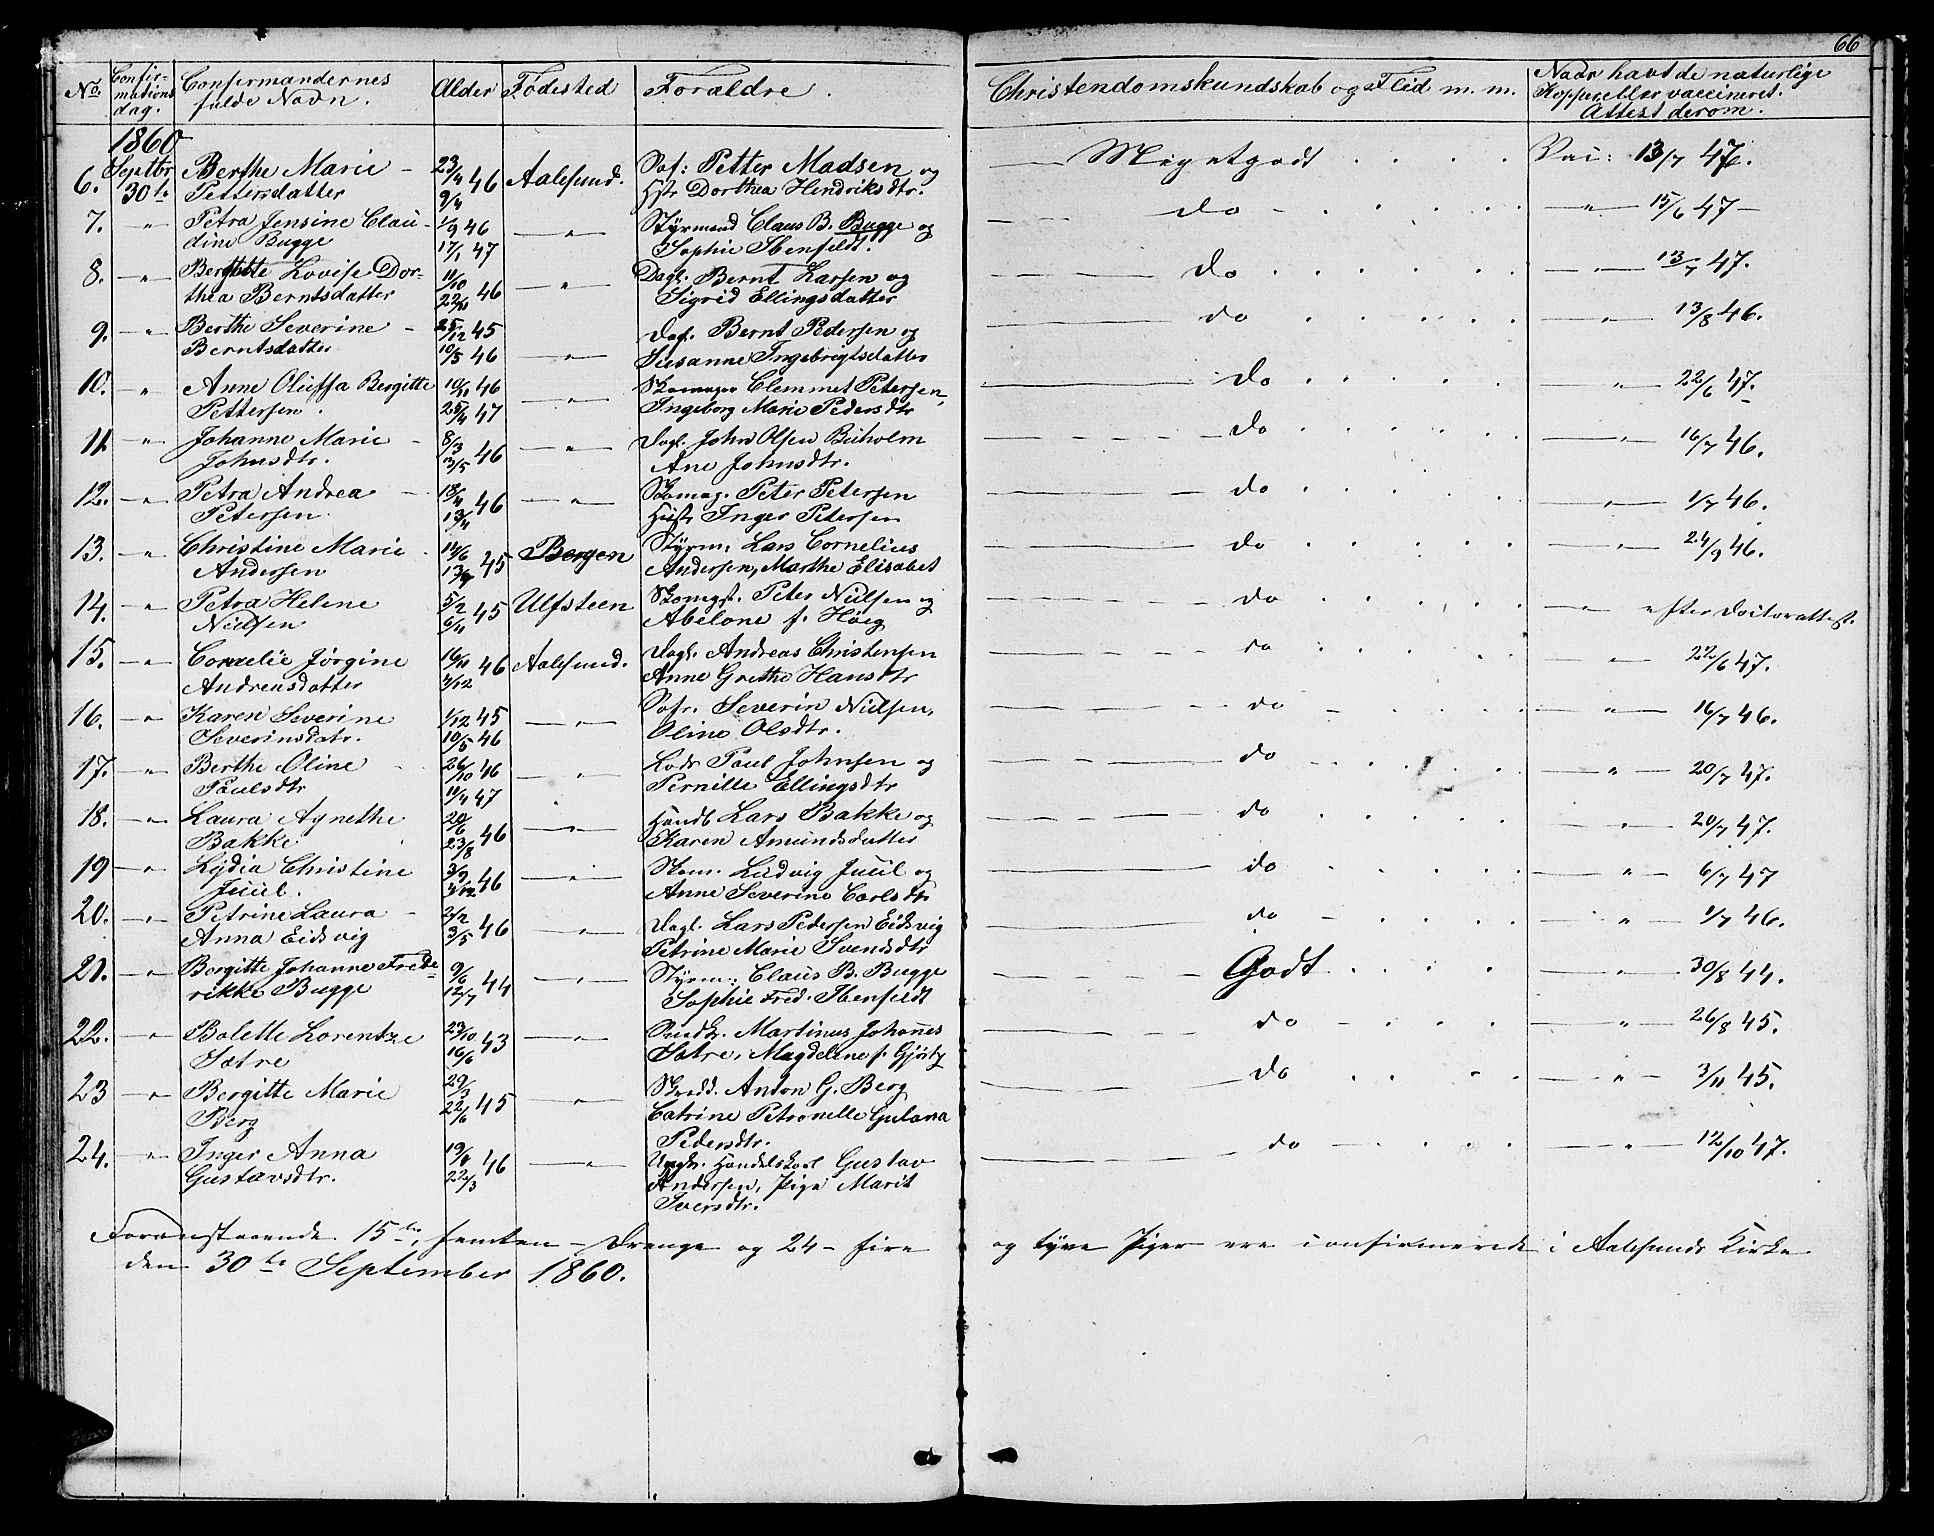 66
No. Confirmations dag. Confirmandernes fulde Navn. Alder Fødested Forældre. Christendomskundskab og Flid m. m. Naar havt de naturlige Kopper eller vaccineret. Attest derom.
1860
6. Septbr 30te Berthe Marie Pettersdatter 23/4 46 9/4 Aalesund. Petter Madsen og Hstr Dorthea Hendriksdtr. — Meget godt . . . . Vai: 13/7 47.
7. — " Petra Jensine Claudine Bugge 1/9 46 17/1 47 — " — Styrmand Claus B. Bugge og Sophie Ibenfeldt. — do — . . . . — " — 15/6 47 —
8. — " Lovise Dorthea Berntsdatter 11/10 22/11 46 — " — Dagl. Bernt Larsen og Sigrid Ellingsdatter — do . . . . — " — 13/7 47.
9. — " Berthe Severine Berntsdatter 25/12 45 10/5 46 — " — Dagl. Bernt Pedersen og Susanne Ingebrigtsdatter — do . . . . — " — 13/8 46.
10. — " Anne Oluffa Bergitte Pettersen. 10/11 46 25/4 47 — " — Skomager Clemmet Petersen, Ingeborg Marie Pedersdtr — do . . . . " — 22/6 47.
11. — " Johanne Marie Johnsdtr. 8/3 3/5 46 — " — Dagl. John Olsen Buholm Ane Johnsdtr. — do . . . . — " — 16/7 46.
12. — " Petra Andrea Petersen. 18/4 46 — " — Skomag. Peter Petersen Hustr Inger Petersen — do . . . . — " — 1/7 46.
13. — " Christine Marie Andersen 14/6 45 Bergen Styrm. Lars Cornelius Andersen, Marthe Elisabet — do . . . . — " — 24/9 46.
14. — " Petra Helene Nielsen 5/2 6/4 45 Ulfsteen Peter Nielsen og Abelone f. Høeg — do . . . . — " — efter Doctorattest.
15. — " Cornelie Jørgine Andreasdatter 16/10 3/12 46 Aalesund. Dagl. Andreas Christensen Anne Grethe Hansdtr — do . . . . — " — 22/6 47.
16. — " Karen Severine Severinsdatr. 1/12 45 10/5 46 — " — Severin Nielsen, Oline Olsdtr. — do — . . . . — " — 16/7 46.
17. — " Berthe Oline Paulsdtr 26/10 46 11/4 47 — " — Lods Paul Johnsen og Pernille Ellingsdtr — do — . . . . — " — 20/7 47.
18. — " Laura Agnethe Bakke 20/6 23/8 46 — " — Handl Lars Bakke og Karen Amundsdatter — do . . . . — " — 20/7 47.
19 — " Lydia Christine Juul. 3/9 46 — " — Skom. Ludvig Juul og Anne Severine Carlsdtr — do . . . . " — 6/7 47
20. — " Petrine Laura Anna Eidsvig 2/2 3/5 46 — " — Dagl. Lars Pedersen Eidsvig Petrine Marie Svendsdtr — do — . . . . — " — 1/7 46.
21. — " Bergitte Johanne Frederikke Bugge 9/6 12/7 44 — " — Styrm. Claus B. Bugge Sophie Fred. Ibenfeldt — Godt . . . . — " — 30/8 44.
22. — " Bolette Lorentze Sætre 23/10 16/6 43 — " — Martinus Johannes Sætre, Magdelene f. — do — . . . . — " — 26/8 45.
23 — " Bergitte Marie Berg 29/3 22/6 45 — " — Skredd. Anton G. Berg Catrine Petronelle Pedersdtr. — do . . . . — " — 3/11 45.
24. — " Inger Anna Gustavsdtr. 46 22/3 — " — Ungk. Handelskarl Gustav Andersen, Pige Marit Iversdtr. — do — . . . . — " — 12/10 47.
Foranstaaende 15ten, femten — Drenge og 24 — fire og tyve Piger ere confirmerede i Aalesunds Kirke
den 30te September 1860.